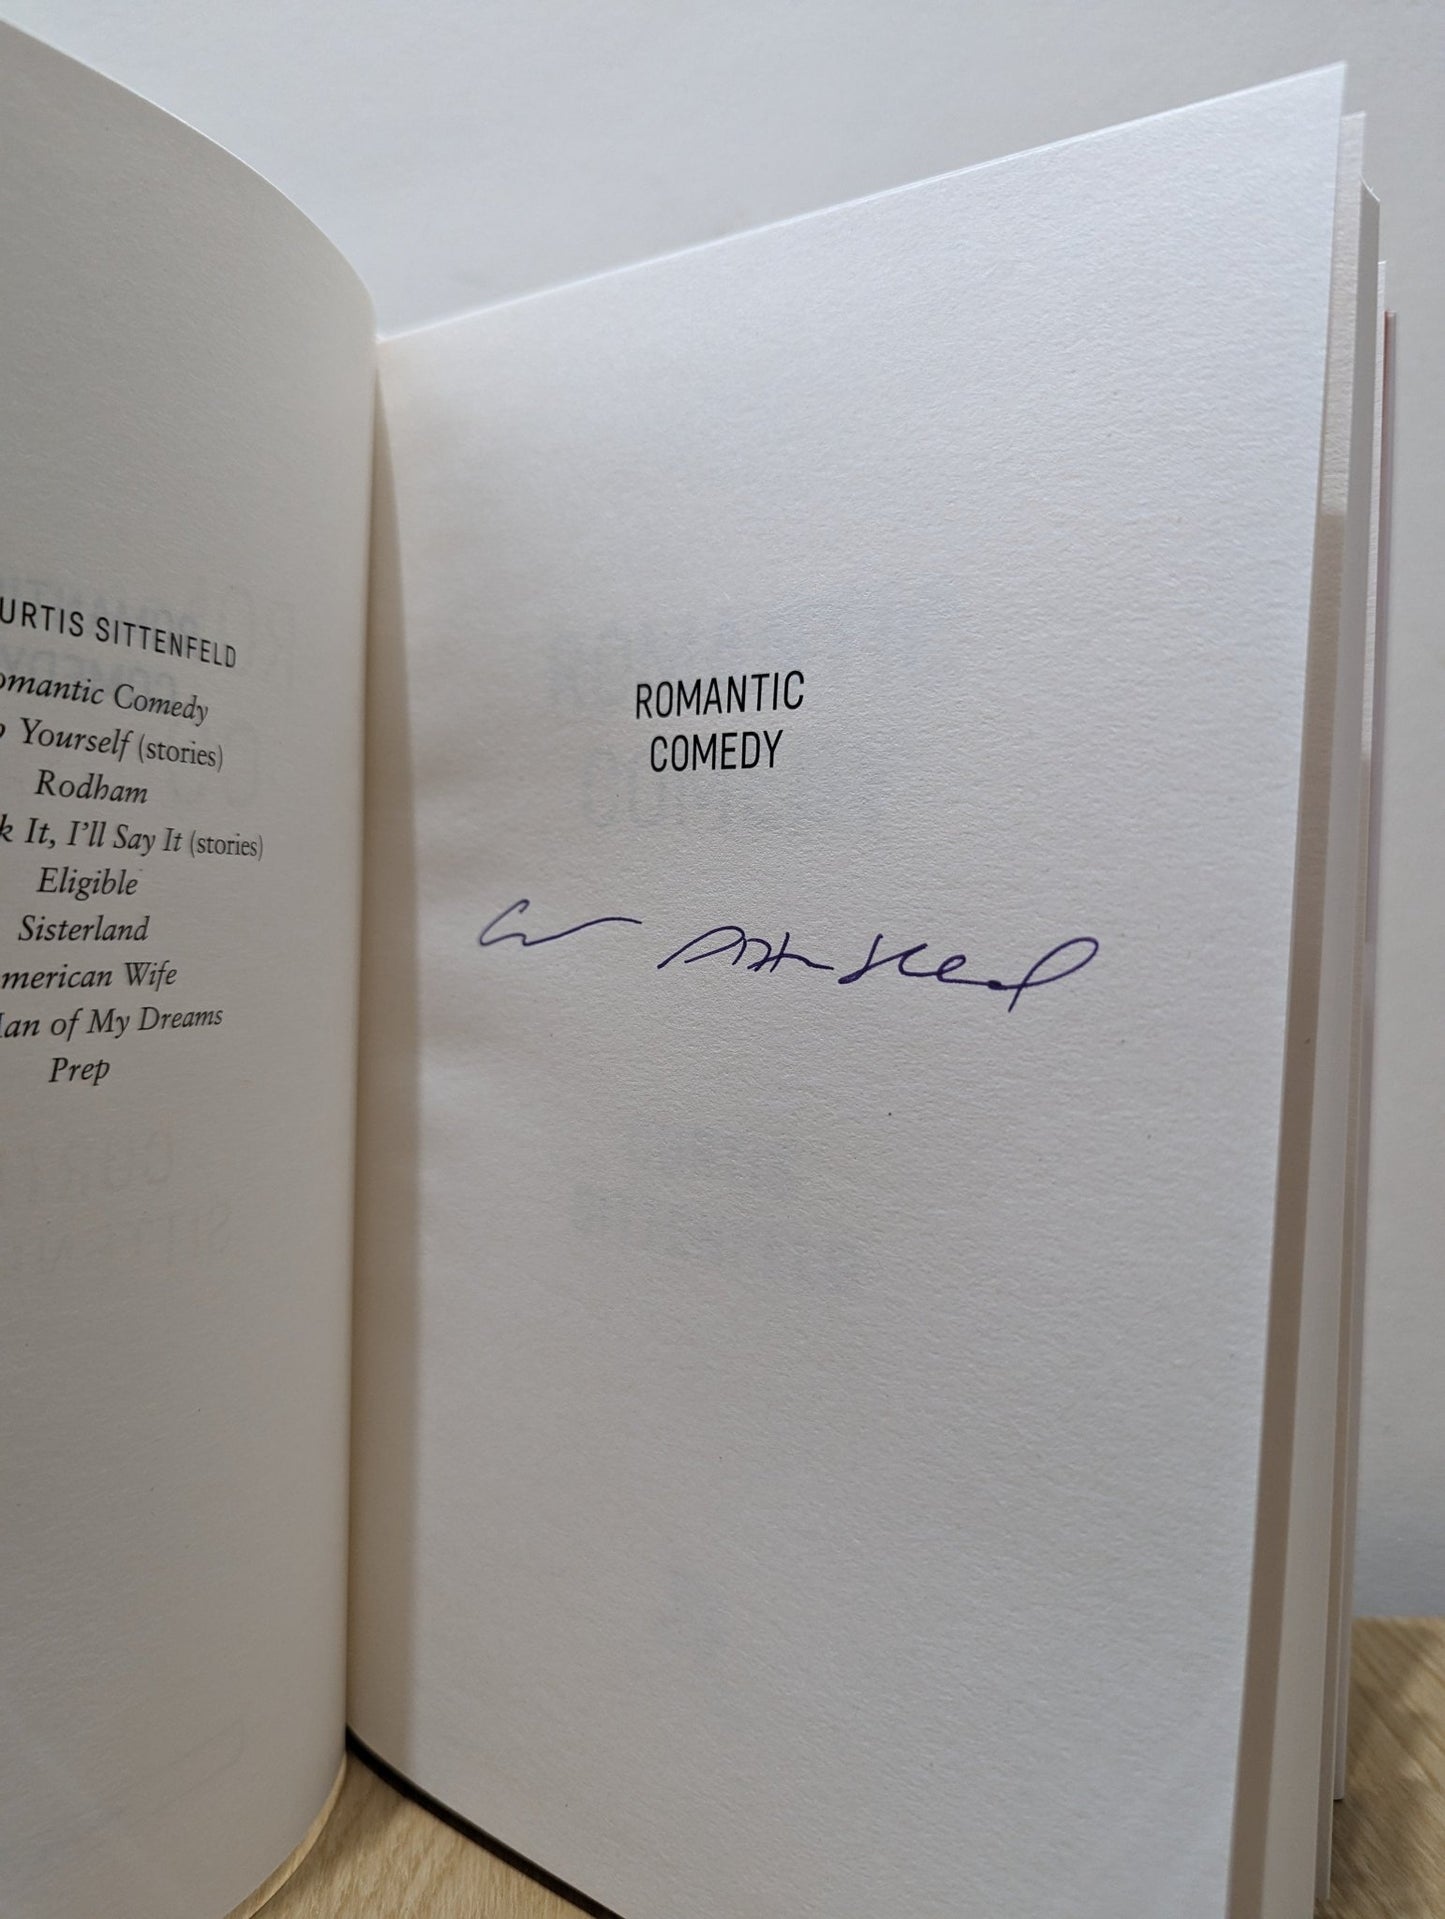 URTIS SITTENFELD
omantic Comedy
Yourself (stories)
Rodham
k It, I'll Say It (stories)
Eligible
Sisterland
merican Wife
an of My Dreams
Prep
ROMANTIC
COMEDY